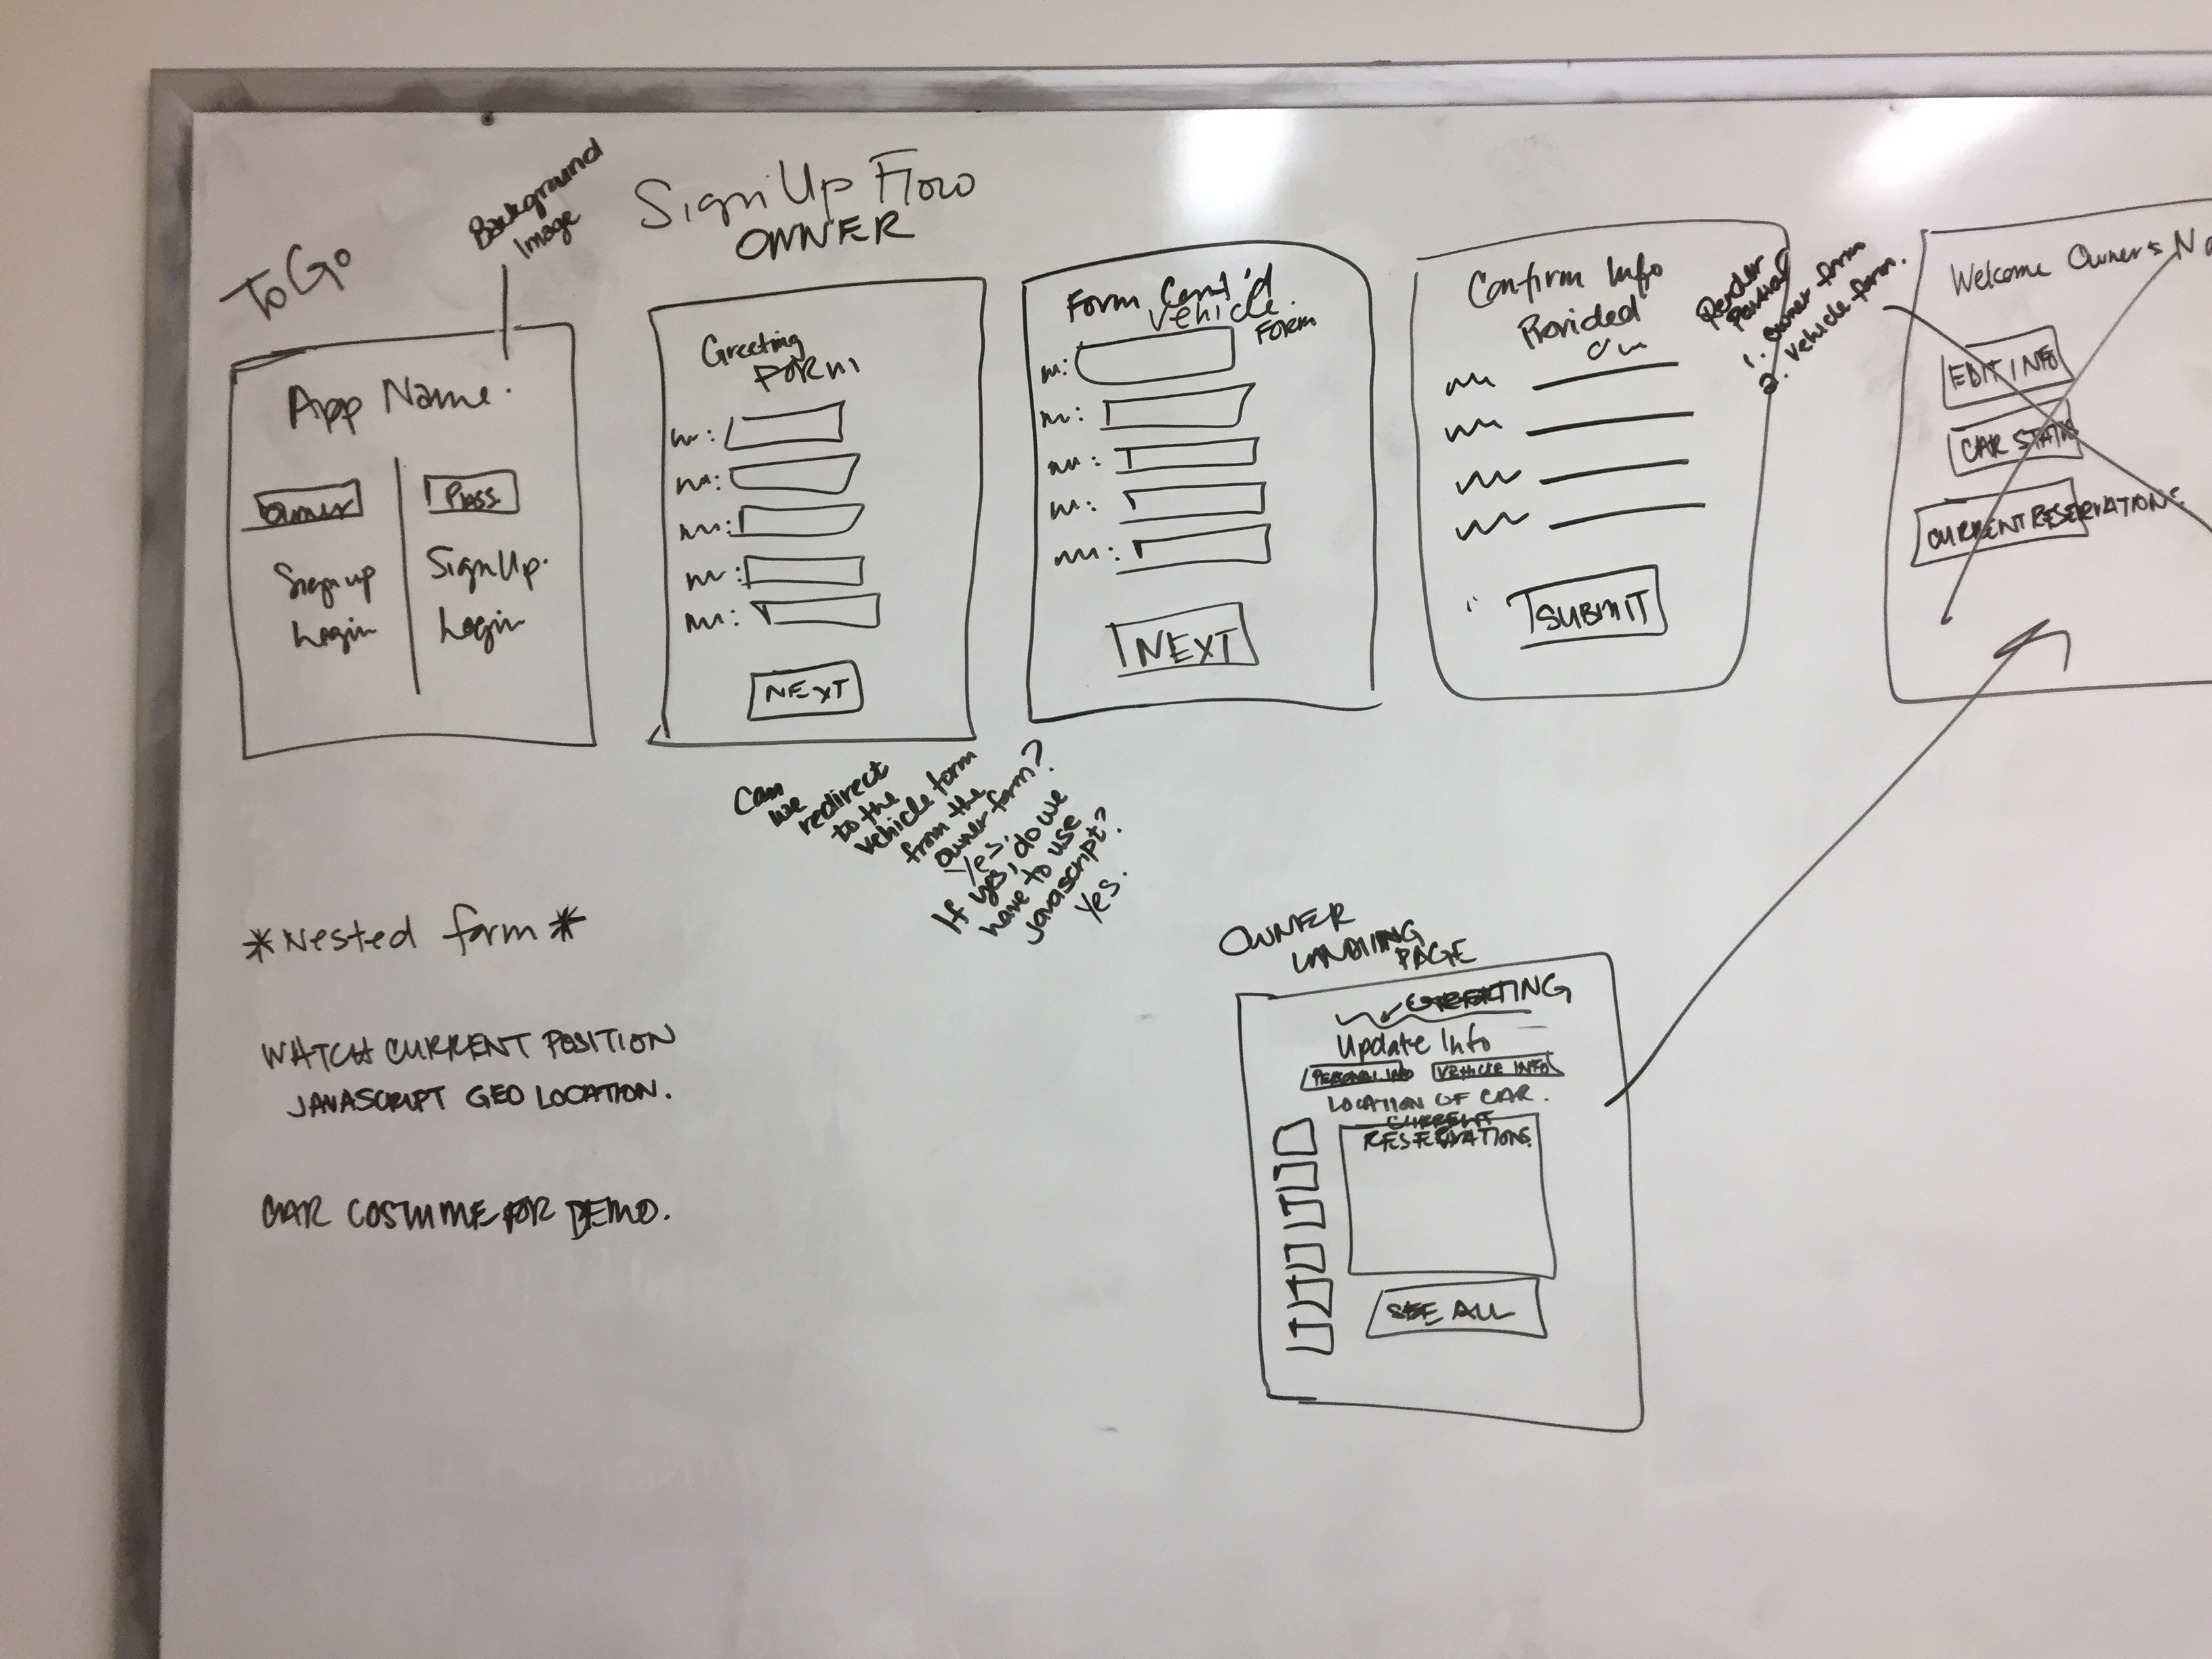 ToGo
Background
Image
Sign Up Flow
OWNER
App Name.
Owner
Sign up
Login
Pass.
Sign Up.
Login
Greeting
Form
NEXT
Form Cont'd
Vehicle
Form
NEXT
Confirm Info
Provided
SUBMIT
Render
Partial
1. Owner form
2. Vehicle form.
Welcome Owner's Na
EDIT INFO
CAR STATS
CURRENT RESERVATIONS
Can
we
redirect
to the
vehicle form
from the
owner form?
Yes.
If yes, do we
have to use
javascript?
Yes.
*Nested form*
WATCH CURRENT POSITION
JAVASCRIPT GEO LOCATION.
CAR COSTUME FOR DEMO.
OWNER
LANDING
PAGE
GREETING
Update Info
PERSONAL INFO
VEHICLE INFO
LOCATION OF CAR.
CURRENT
RESERVATIONS
SEE ALL